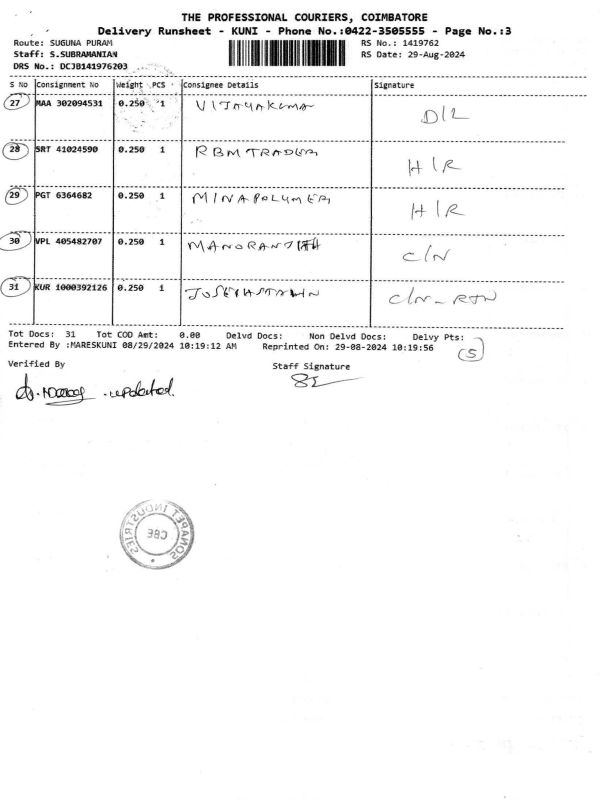 THE PROFESSIONAL COURIERS, COIMBATORE
Delivery Runsheet - KUNI - Phone No.:0422-3505555 - Page No.:3
Route: SUGUNA PURAM RS No.: 1419762
Staff: S.SUBRAMANIAN RS Date: 29-Aug-2024
DRS No.: DCJB141976203
S No Consignment No Weight PCS Consignee Details Signature
27 MAA 302094531 0.250 1 VIJAYAKUMA D/L
28 SRT 41024590 0.250 1 RBM TRADER H/R
29 PGT 6364682 0.250 1 MINA POLYMER H/R
30 VPL 405482707 0.250 1 MANORANJITH C/N
31 KUR 1000392126 0.250 1 JOSEPHSTALIN C/N - RTN
Tot Docs: 31 Tot COD Amt: 0.00 Delvd Docs: Non Delvd Docs: Delvy Pts:
Entered By :MARESKUNI 08/29/2024 10:19:12 AM Reprinted On: 29-08-2024 10:19:56 5
Verified By Staff Signature
updated.
SOMAPET INDUSTRIES
CBE